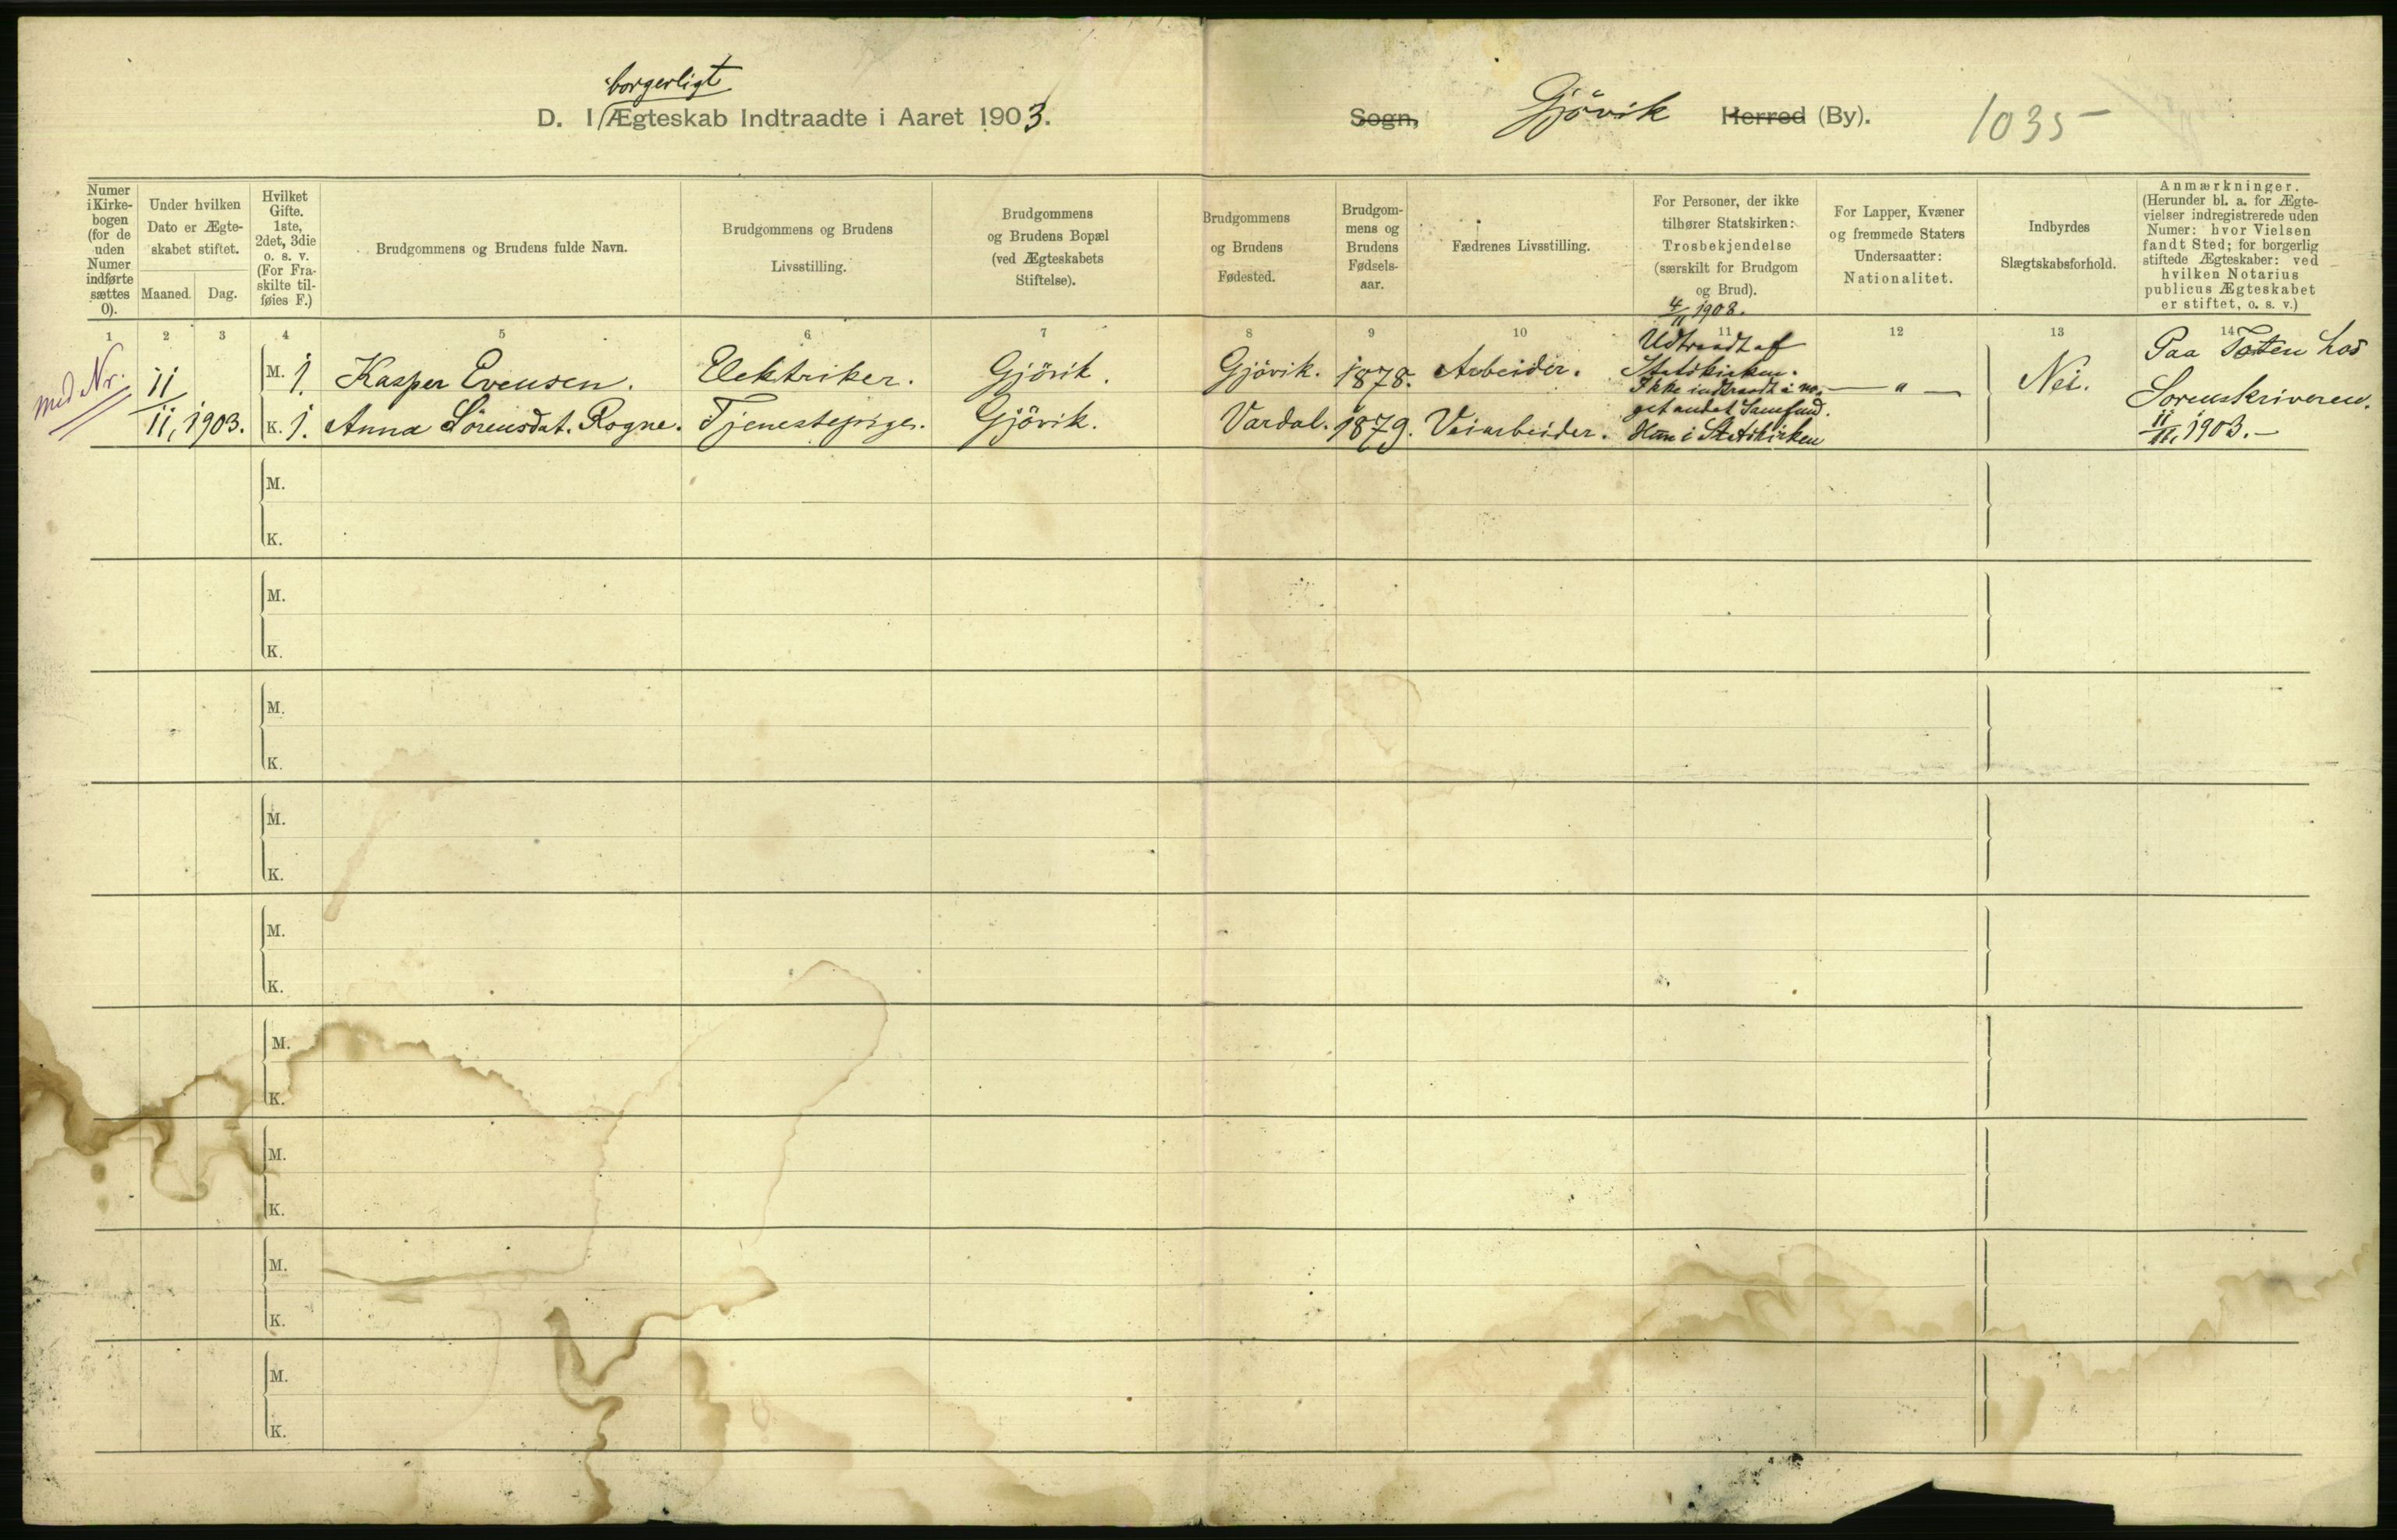 borgerligt
D. I Ægteskab Indtraadte i Aaret 1903.
Sogn, Gjövik Herred (By). 1035
Numer i Kirke-bogen (for de uden Numer indførte sættes 0).
Under hvilken Dato er Ægte-skabet stiftet.
Maaned. Dag.
Hvilket Gifte. 1ste, 2det, 3die o. s. v. (For Fra-skilte til-føies F.)
Brudgommens og Brudens fulde Navn.
Brudgommens og Brudens Livsstilling.
Brudgommens og Brudens Bopæl (ved Ægteskabets Stiftelse).
Brudgommens og Brudens Fødested.
Brudgom-mens og Brudens Fødsels-aar.
Fædrenes Livsstilling.
For Personer, der ikke tilhører Statskirken: Trosbekjendelse (særskilt for Brudgom og Brud).
For Lapper, Kvæner og fremmede Staters Undersaatter: Nationalitet.
Indbyrdes Slægtskabsforhold.
Anmærkninger. (Herunder bl. a. for Ægte-vielser indregistrerede uden Numer: hvor Vielsen fandt Sted; for borgerlig stiftede Ægteskaber: ved hvilken Notarius publicus Ægteskabet er stiftet, o. s. v.)
1 2 3 4 5 6 7 8 9 10 11 12 13 14
med Nr.
11/11, 1903.
M. 1. Kasper Evensen. Elektriker. Gjövik. Gjövik. 1878. Arbeider.
K. 1. Anna Sörensdat. Rogne. Tjenestepige. Gjövik. Vardal. 1879. Veiarbeider.
4/11 1903.
Udtraadt af
Statskirken.
Ikke indtraadt i no-
get andet Samfund.
Hun i Statskirken
— " —
Nei.
Paa Toten hos
Sorenskriveren.
11/11, 1903.—
M.
K.
M.
K.
M.
K.
M.
K.
M.
K.
M.
K.
M.
K.
M.
K.
M.
K.